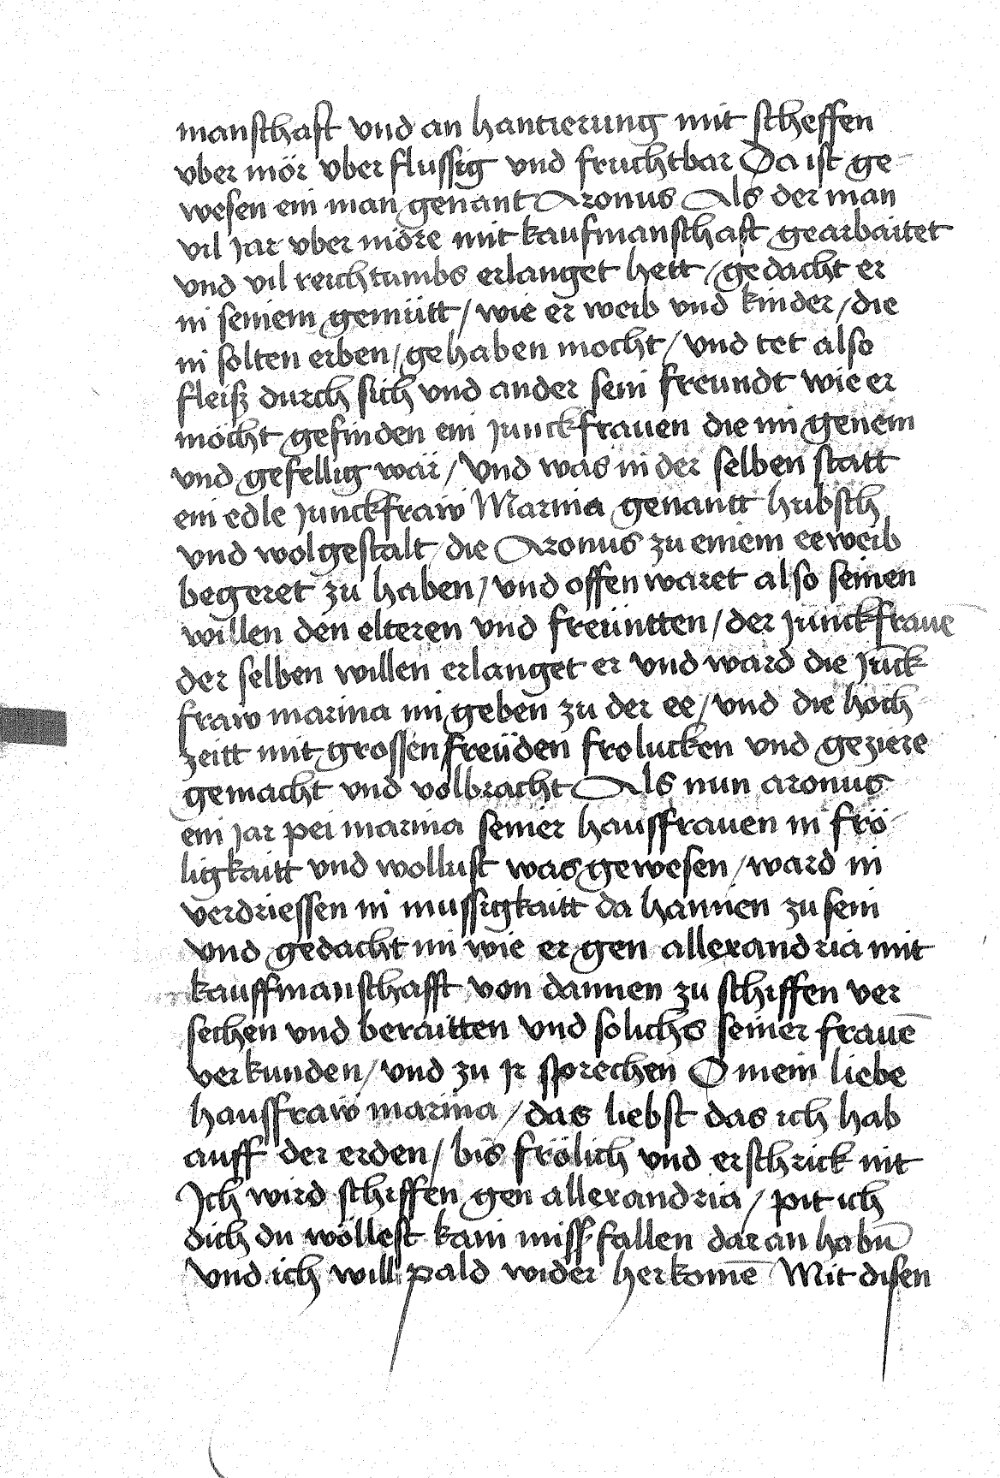 manschaft vnd an hantierung mit scheffen
vber mör vber flussig vnd fruchtbar Da ist ge-
wesen ein man genant Aronus Als der man
vil jar vber möre mit kaufmanschaft gearbaitet
vnd vil reichtumbs erlanget hett / gedacht er
in seinem gemütt / wie er weib vnd kinder / die
in solten erben / gehaben mocht / vnd tet also
fleiß durch sich vnd ander sein freundt wie er
möcht gefinden ein junckfrauen die im genem
vnd gefellig wär / Vnd was in der selben statt
ein edle junckfraw Marina genantt hubsch
vnd wolgestalt / die Aronus zu einem eeweib
begeret zu haben / vnd offenwaret also seinen
willen den elteren vnd freüntten / der junckfraue
der selben willen erlanget er vnd ward die junck
fraw marina im geben zu der ee / vnd die hoch
zeitt mit grossen freüden frolucken vnd geziere
gemacht vnd volbracht Als nun aronus
ein jar pei marina seiner haussfrauen in frö-
ligkaitt vnd wollust was gewesen / ward in
verdriessen in mussigkaitt da hannen zu sein
Vnd gedacht im wie er gen allexandria mit
kauffmanschafft von dannen zu schiffen ver
sechen vnd beraitten vnd solichs seiner frauē
verkunden / vnd zu jr sprechen O mein liebe
haussfraw marina / das liebst das ich hab
auff der erden / bis frölich vnd erschrick nit
Ich wird schiffen gen allexandria / pit ich
dich du wöllest kain missfallen dar an habn̄
Vnd ich will pald wider herkomē Mit disen